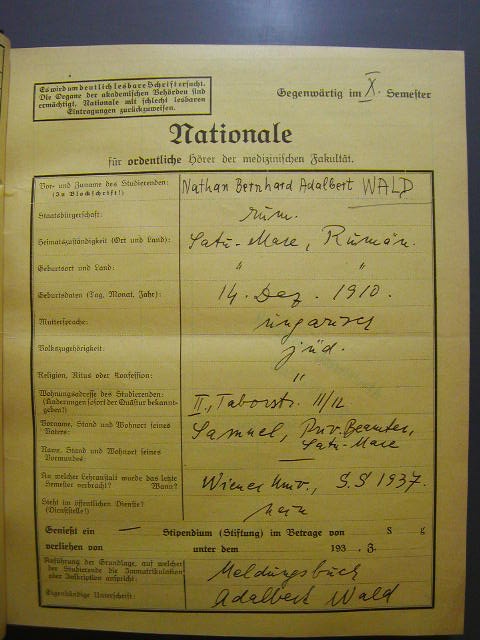 Es wird um deutlich lesbare Schrift ersucht.
Die Organe der akademischen Behörden sind
ermächtigt, Nationale mit schlecht lesbaren
Eintragungen zurückzuweisen.
Gegenwärtig im X. Semester
Nationale
für ordentliche Hörer der medizinischen Fakultät.
Vor- und Zuname des Studierenden: (In Blockschrift!) Nathan Bernhard Adalbert WALD
Staatsbürgerschaft: rum.
Heimatszuständigkeit (Ort und Land): Satu-Mare, Rumän.
Geburtsort und Land: " "
Geburtsdaten (Tag, Monat, Jahr): 14. Dez. 1910.
Muttersprache: ungarisch
Volkszugehörigkeit: jüd.
Religion, Ritus oder Konfession: "
Wohnungsadresse des Studierenden: (Änderungen sofort der Quästur bekanntgeben!) II., Taborstr. 11/12
Vorname, Stand und Wohnort seines Vaters: Samuel, Priv. Beamter, Satu-Mare
Name, Stand und Wohnort seines Vormundes: —
An welcher Lehranstalt wurde das letzte Semester verbracht? Wann? Wiener Univ., S.S 1937.
Steht im öffentlichen Dienste? (Dienststelle?) nein
Genießt ein — Stipendium (Stiftung) im Betrage von S g
verliehen von unter dem 193 , Z.
Anführung der Grundlage, auf welcher der Studierende die Immatrikulation oder Inskription anspricht: Meldungsbuch
Eigenhändige Unterschrift: Adalbert Wald